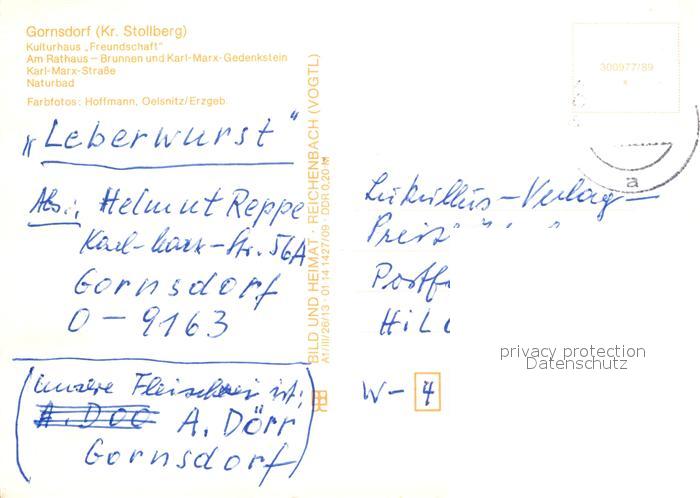 Gornsdorf (Kr. Stollberg)
Kulturhaus „Freundschaft"
Am Rathaus – Brunnen und Karl-Marx-Gedenkstein
Karl-Marx-Straße
Naturbad
Farbfotos: Hoffmann, Oelsnitz/Erzgeb.
„Leberwurst"
Abs.: Helmut Reppe
Karl-Marx-Str. 56A
Gornsdorf
O – 9163
(unsere Fleischerei ist:
A. Dörr
Gornsdorf)
BILD UND HEIMAT · REICHENBACH (VOGTL)
A1/III/26/13 · 01 14 1427/09 · DDR 0,20 M
300977/89
a
Lukullus-Verlag
Preis
Postf
Hil
W – 4
privacy protection
Datenschutz